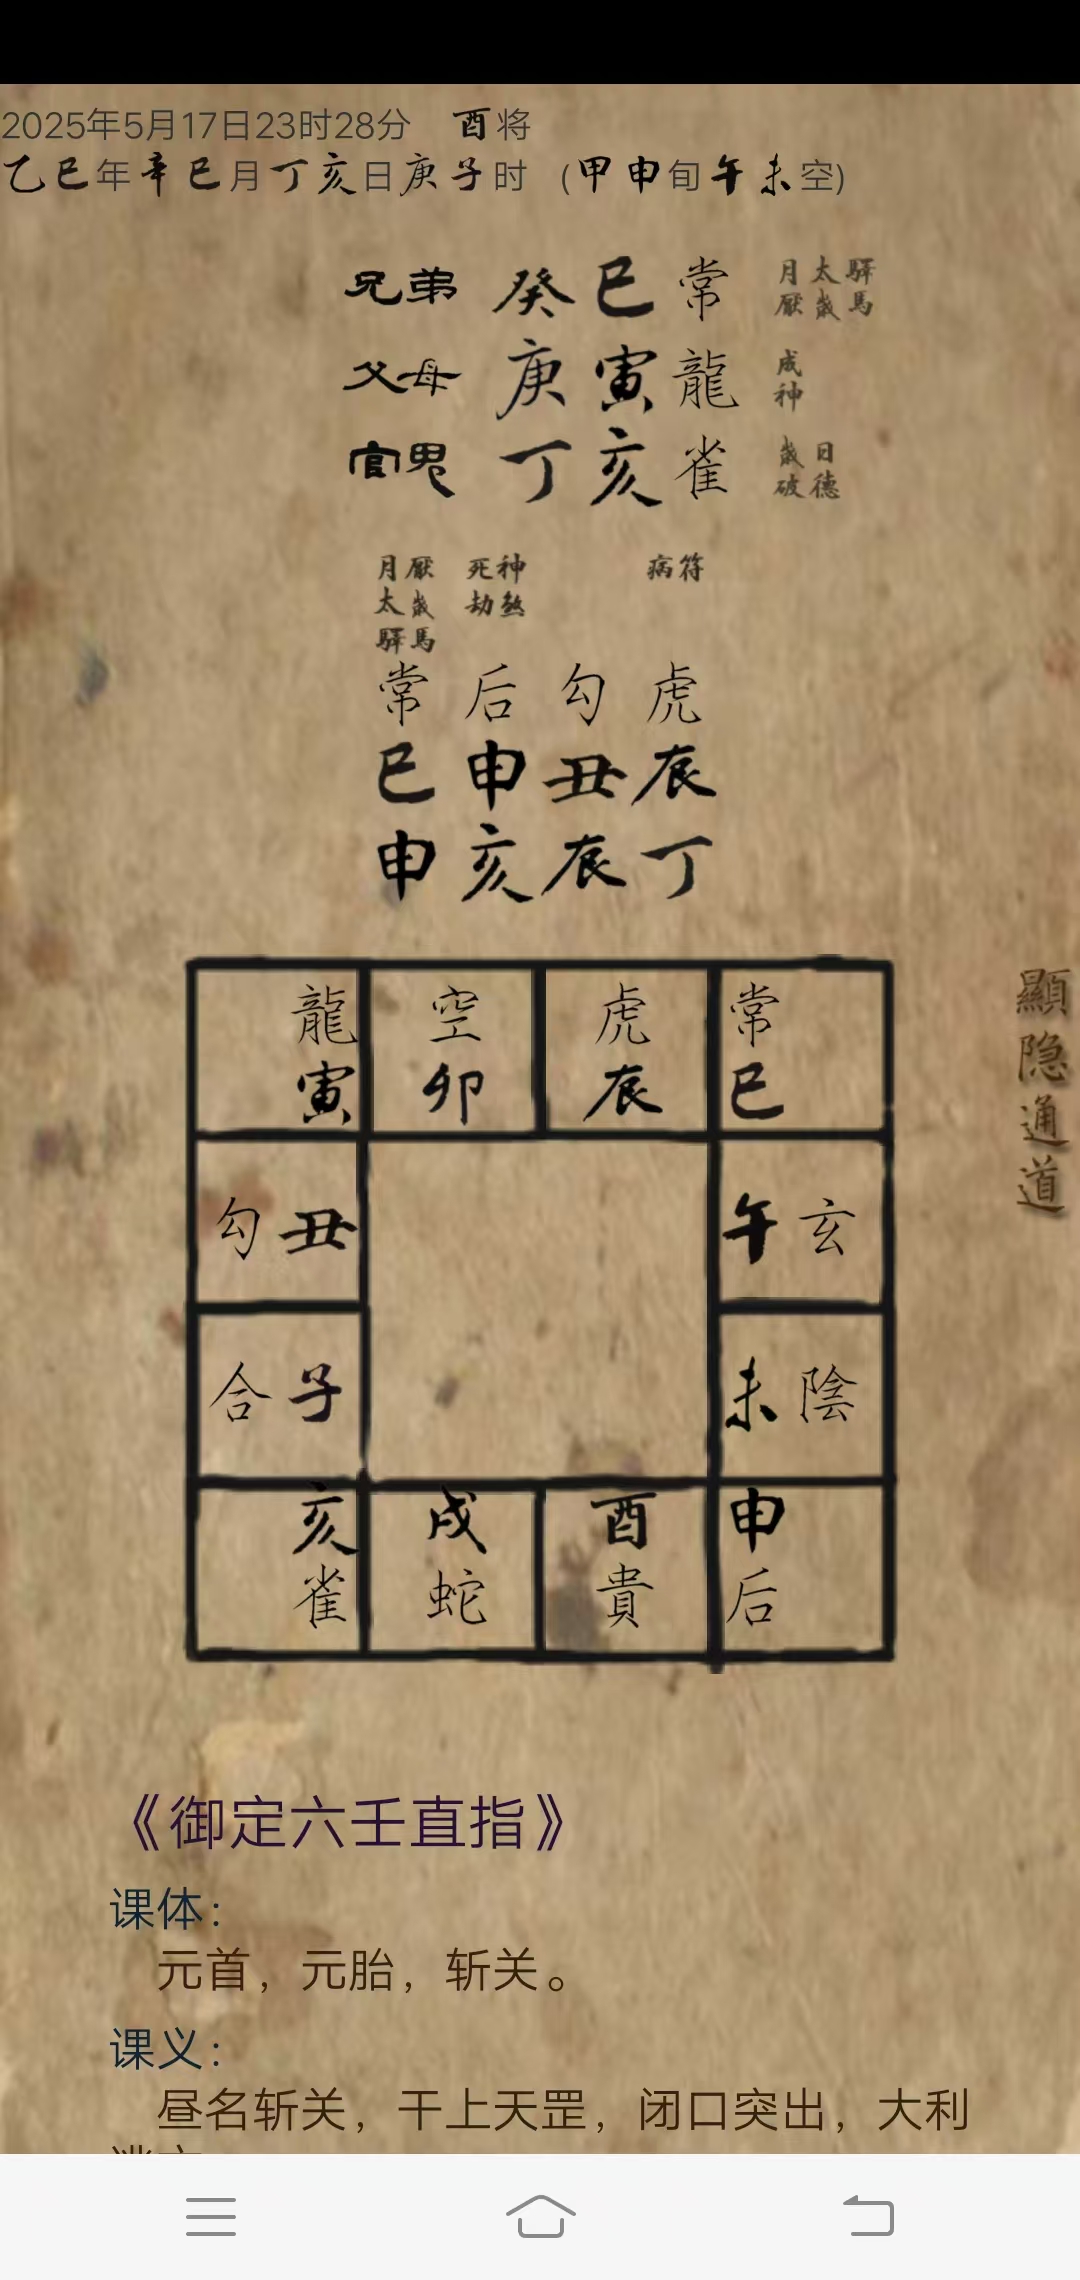 2025年5月17日23时28分 酉将
乙巳年辛巳月丁亥日庚子时 (甲申旬午未空)
兄弟 癸巳常 月厭 太歲 驛馬
父母 庚寅龍 成神
官鬼 丁亥雀 歲破 日德
月厭 死神 病符
太歲 劫煞
驛馬
常后勾虎
巳申丑辰
申亥辰丁
龍 空 虎 常
寅 卯 辰 巳
勾丑 午玄
合子 未陰
亥 戌 酉 申
雀 蛇 貴 后
顯隐通道
《御定六壬直指》
课体：
元首，元胎，斩关。
课义：
昼名斩关，干上天罡，闭口突出，大利